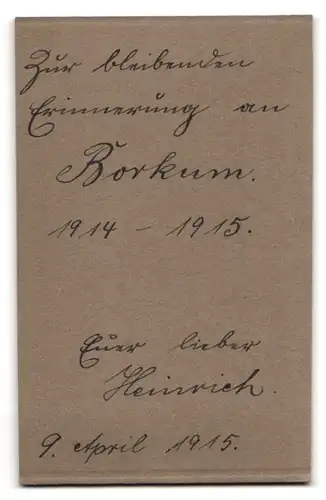 Zur bleibenden
Erinnerung an
Borkum.
1914 - 1915.
Euer lieber
Heinrich.
9. April 1915.